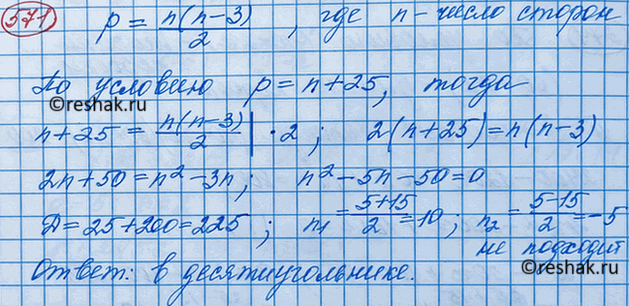 571 p = n(n-3)/2 , где n - число сторон
По условию p = n+25, тогда
© reshak.ru © reshak.ru
n+25 = n(n-3)/2 | ·2 ; 2(n+25) = n(n-3)
2n+50 = n² - 3n; n² - 5n - 50 = 0
D = 25+200 = 225 ; n₁ = 5+15/2 = 10 ; n₂ = 5-15/2 = -5
не подходит
Ответ: в десятиугольнике.
© reshak.ru © reshak.ru